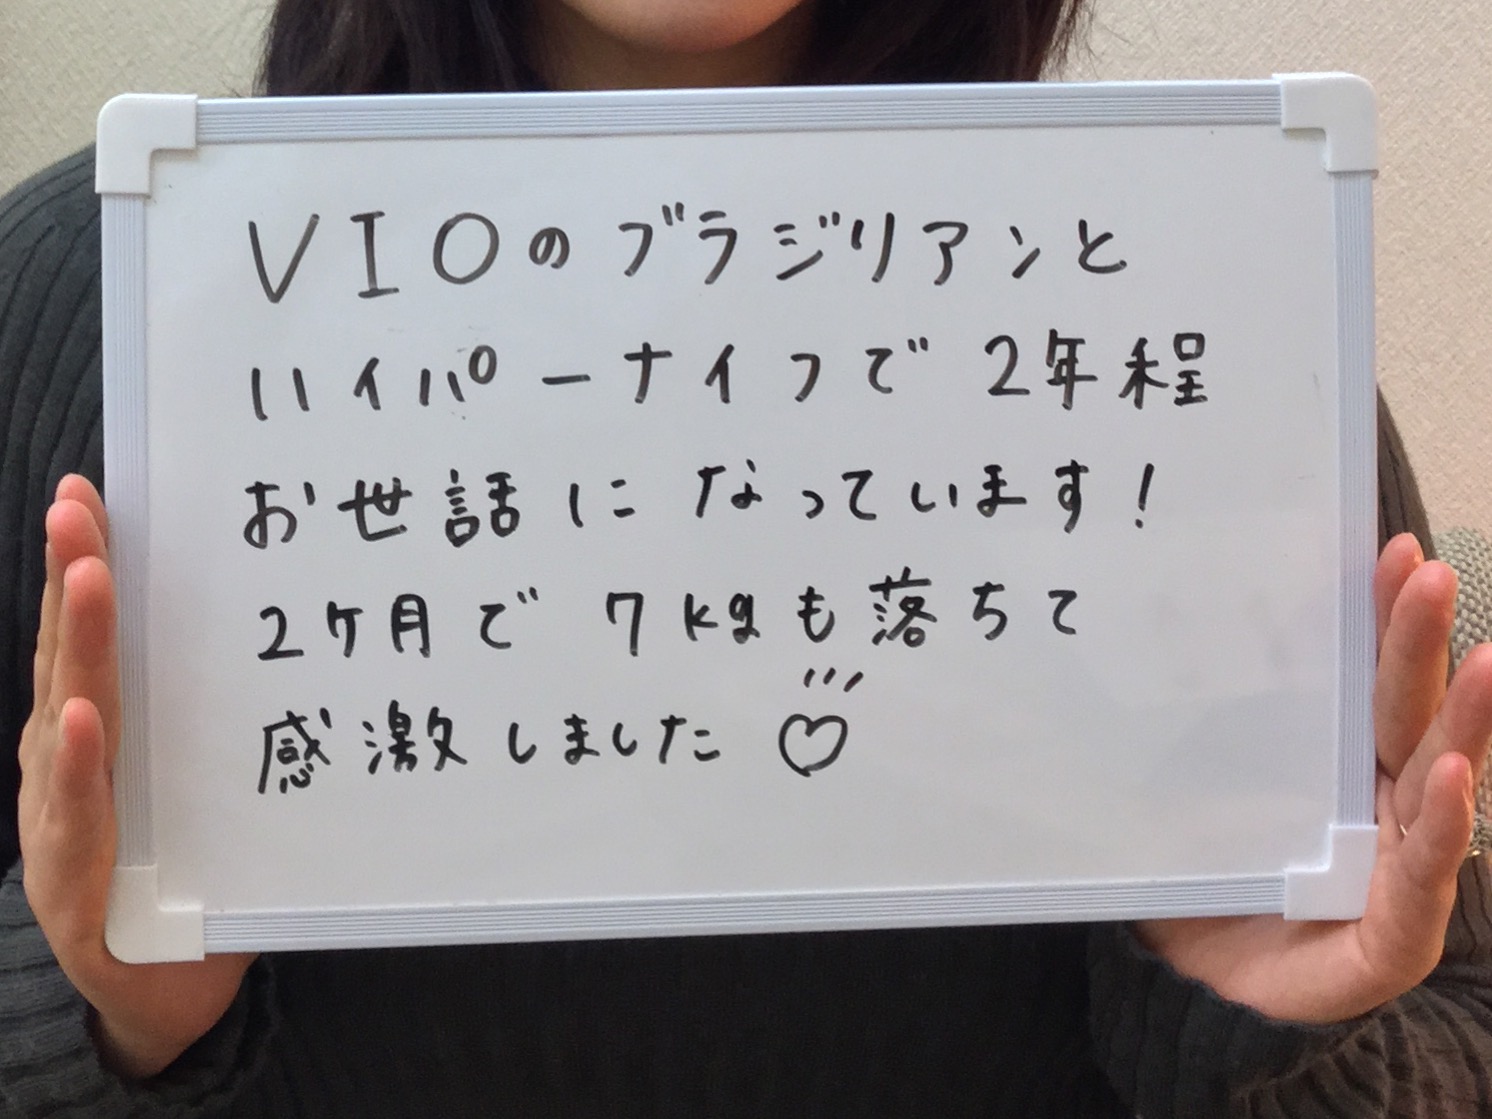 VIOのブラジリアンと
ハイパーナイフで2年程
お世話になっています！
2ヶ月で7kgも落ちて
感激しました♡